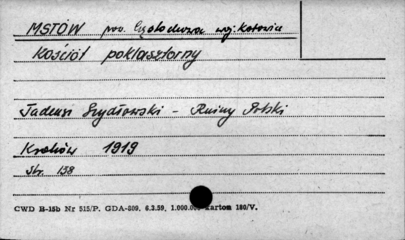 MSTÓW pow. Częstochowa woj: Katowice
Kościół poklasztorny
Tadeusz Szydłowski - Ruiny Polski
Kraków 1919
Str. 158
CWD B-15b Nr 515/P. GDA-809. 6.3.59, 1.000.000 karton 180/V.